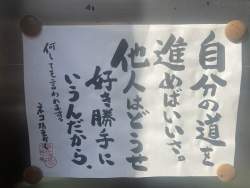 自分の道を
進めばいいさ。
他人はどうせ
好き勝手に
いうんだから、
何しても言われます。